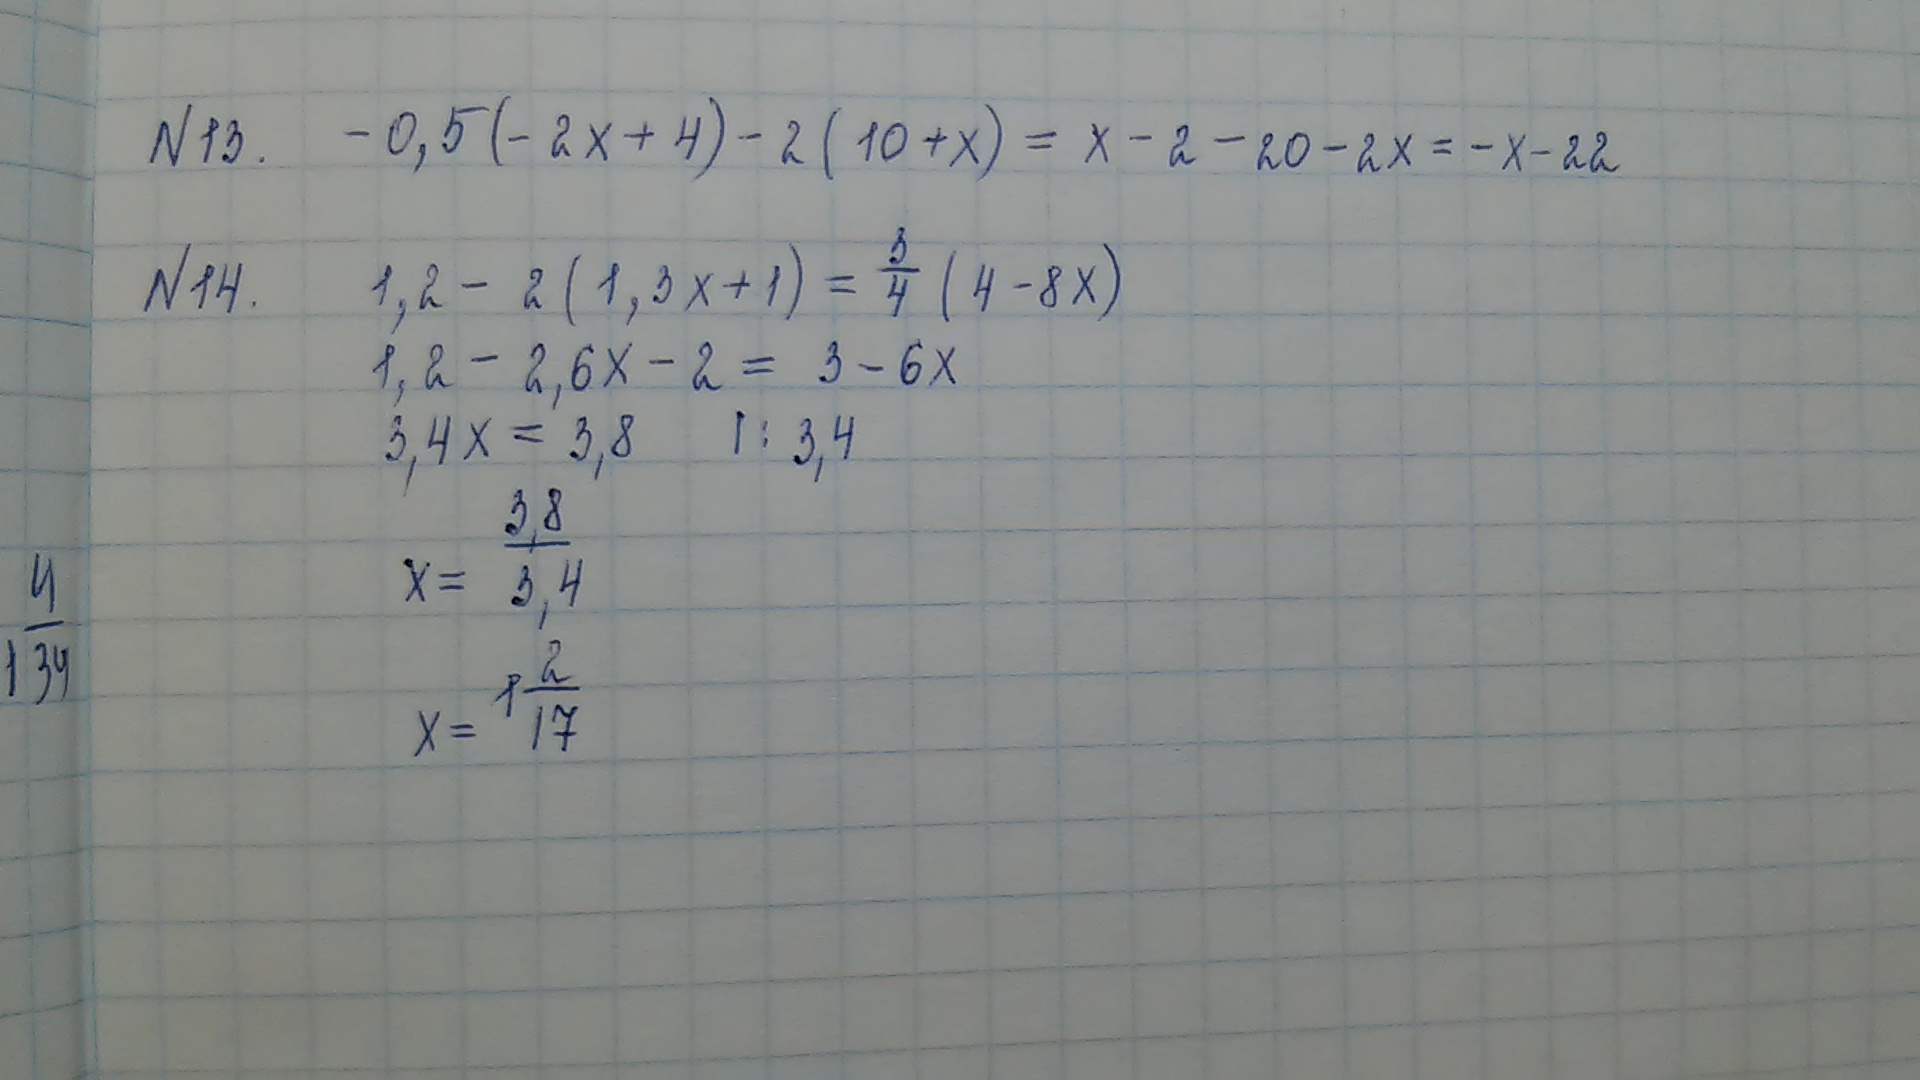 N13. -0,5(-2x+4)-2(10+x) = x-2-20-2x=-x-22
N14. 1,2 - 2(1,3x+1) = 3/4 (4-8x)
1,2 - 2,6x - 2 = 3 - 6x
3,4x = 3,8 |: 3,4
x = 3,8/3,4
x = 1 2/17
1 4/34